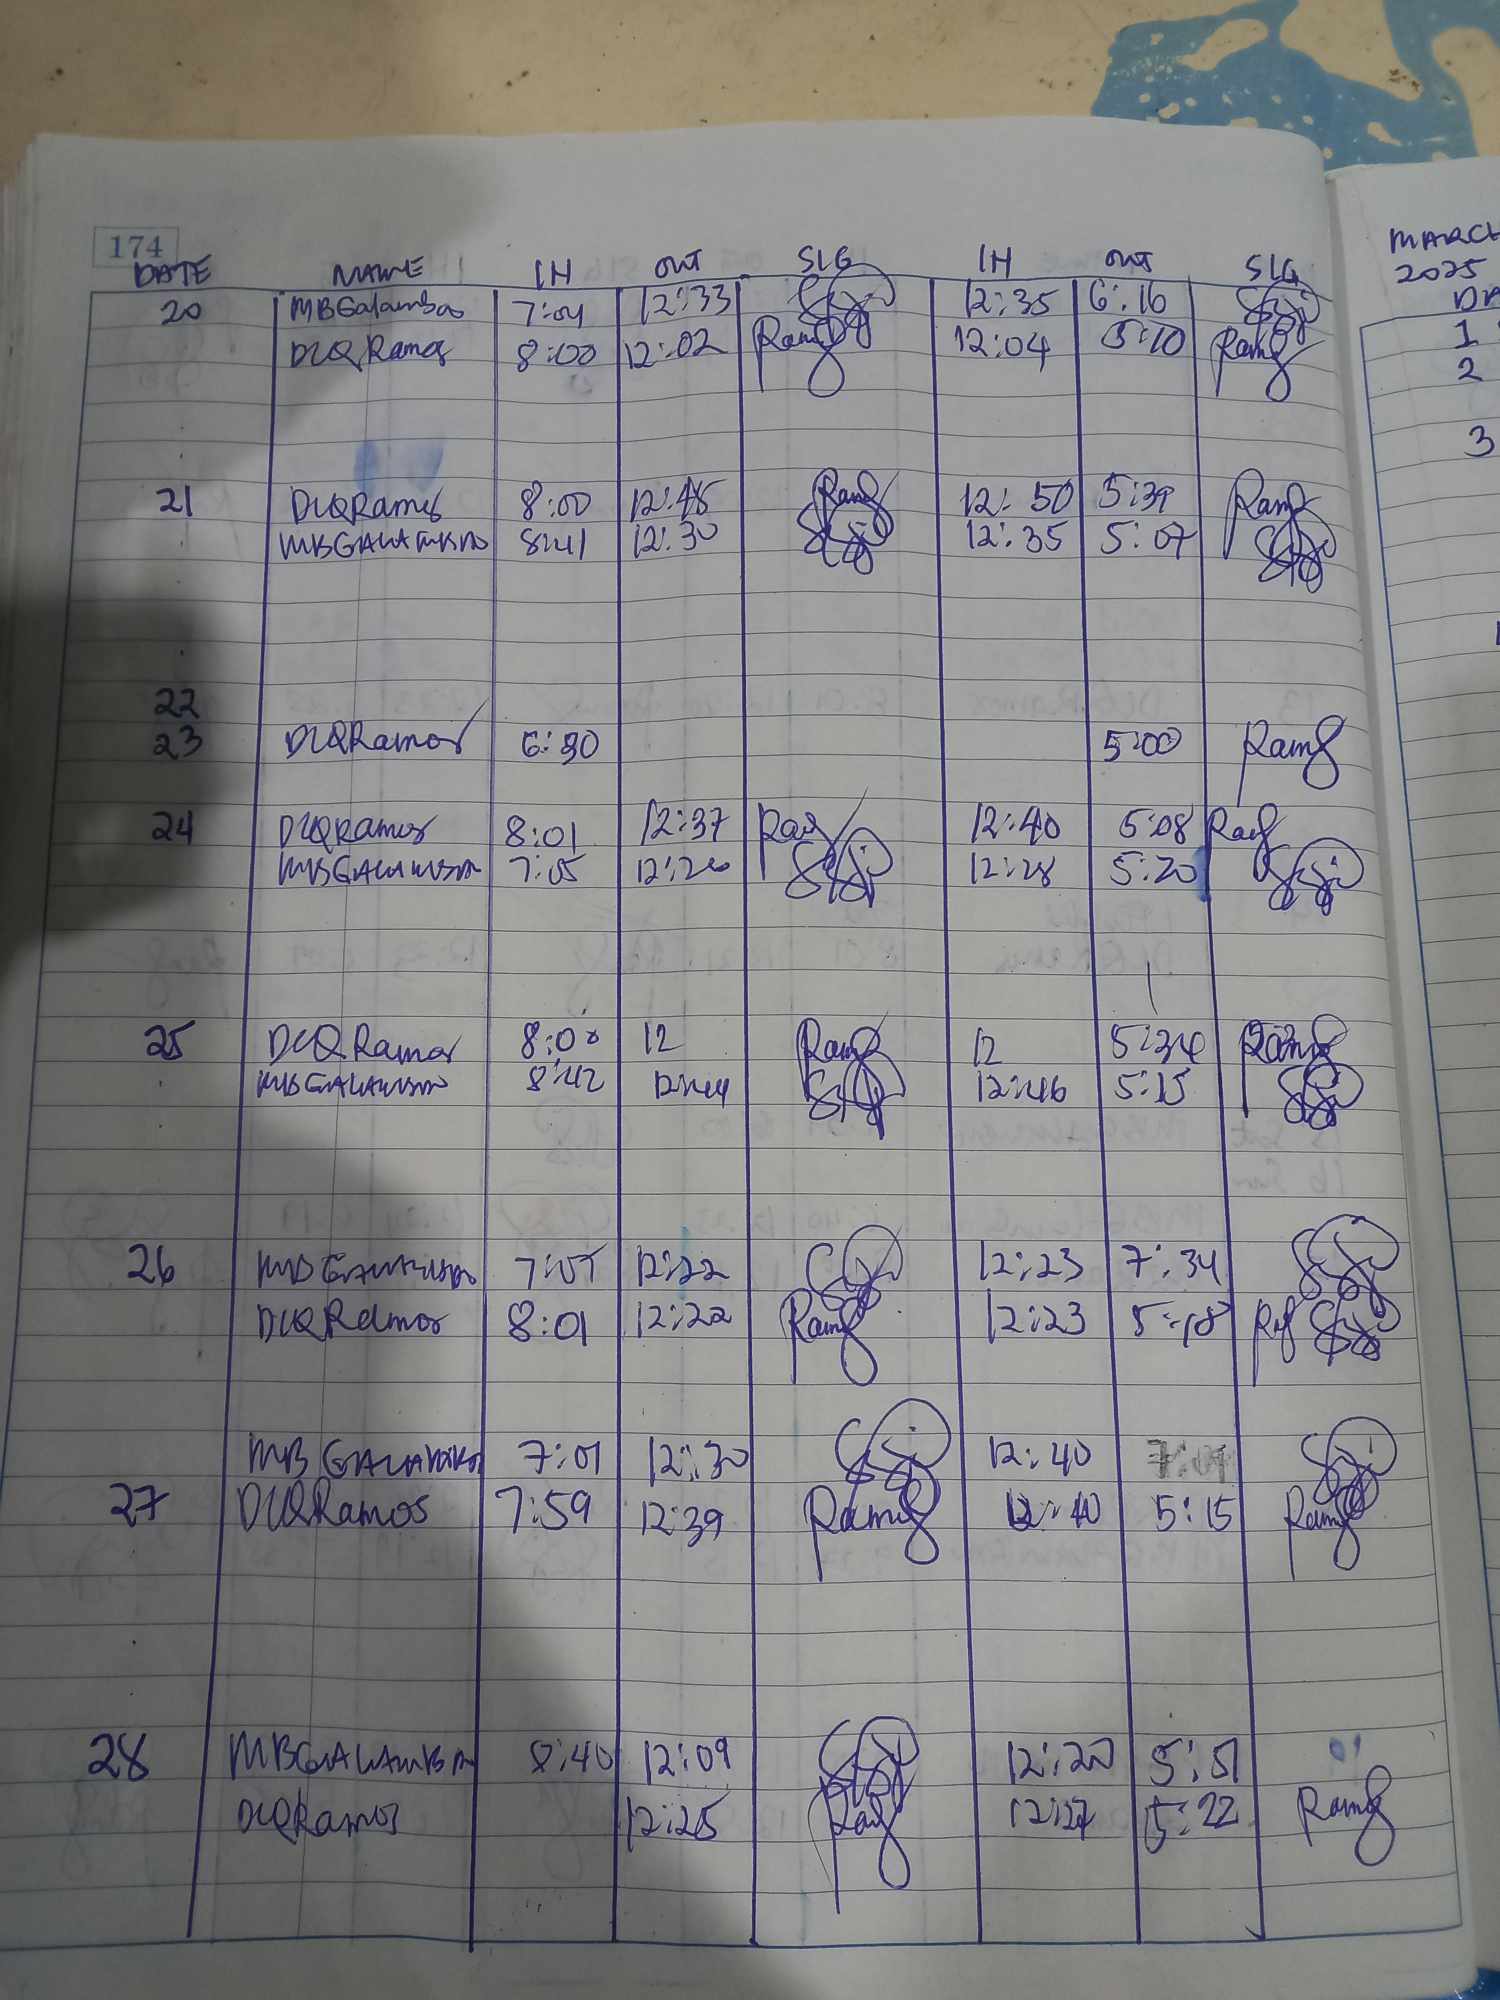 174
DATE NAME IH OUT SIG IH OUT SIG
20 MBGalamba 7:04 12:33 12:35 6:16
DLQRamos 8:00 12:02 Ramos 12:04 5:10 Ramos
21 DLQRamos 8:00 12:45 Ramos 12:50 5:39 Ramos
MBGALAMBA 8:41 12:30 12:35 5:07
22
23 DLQRamos 6:30 5:00 Ramos
24 DLQRamos 8:01 12:37 12:40 5:08
MBGALAMBA 7:05 12:26 12:28 5:20
25 DLQRamos 8:00 12 Ramos 12 5:34 Ramos
MBGALAMBA 8:42 12:44 12:46 5:15
26 MBGALAMBA 7:05 12:22 12:23 7:34
DLQRamos 8:01 12:22 Ramos 12:23 5:18
MB GALAMBA 7:01 12:30 12:40
27 DLQRamos 7:59 12:39 Ramos 12:40 5:15 Ramos
28 MBGALAMBA 8:40 12:09 12:20 5:51
DLQRamos 12:25 12:27 5:22 Ramos
MARCH
2025
DA
1
2
3